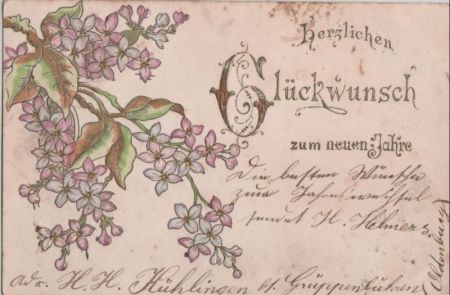 Herzlichen
Glückwunsch
zum neuen Jahre
Die besten Wünsche
zum Jahreswechsel
sendet H. Helmers
(Oldenburg)
adr. H. H. Kühlingen bei Grüppenbühren